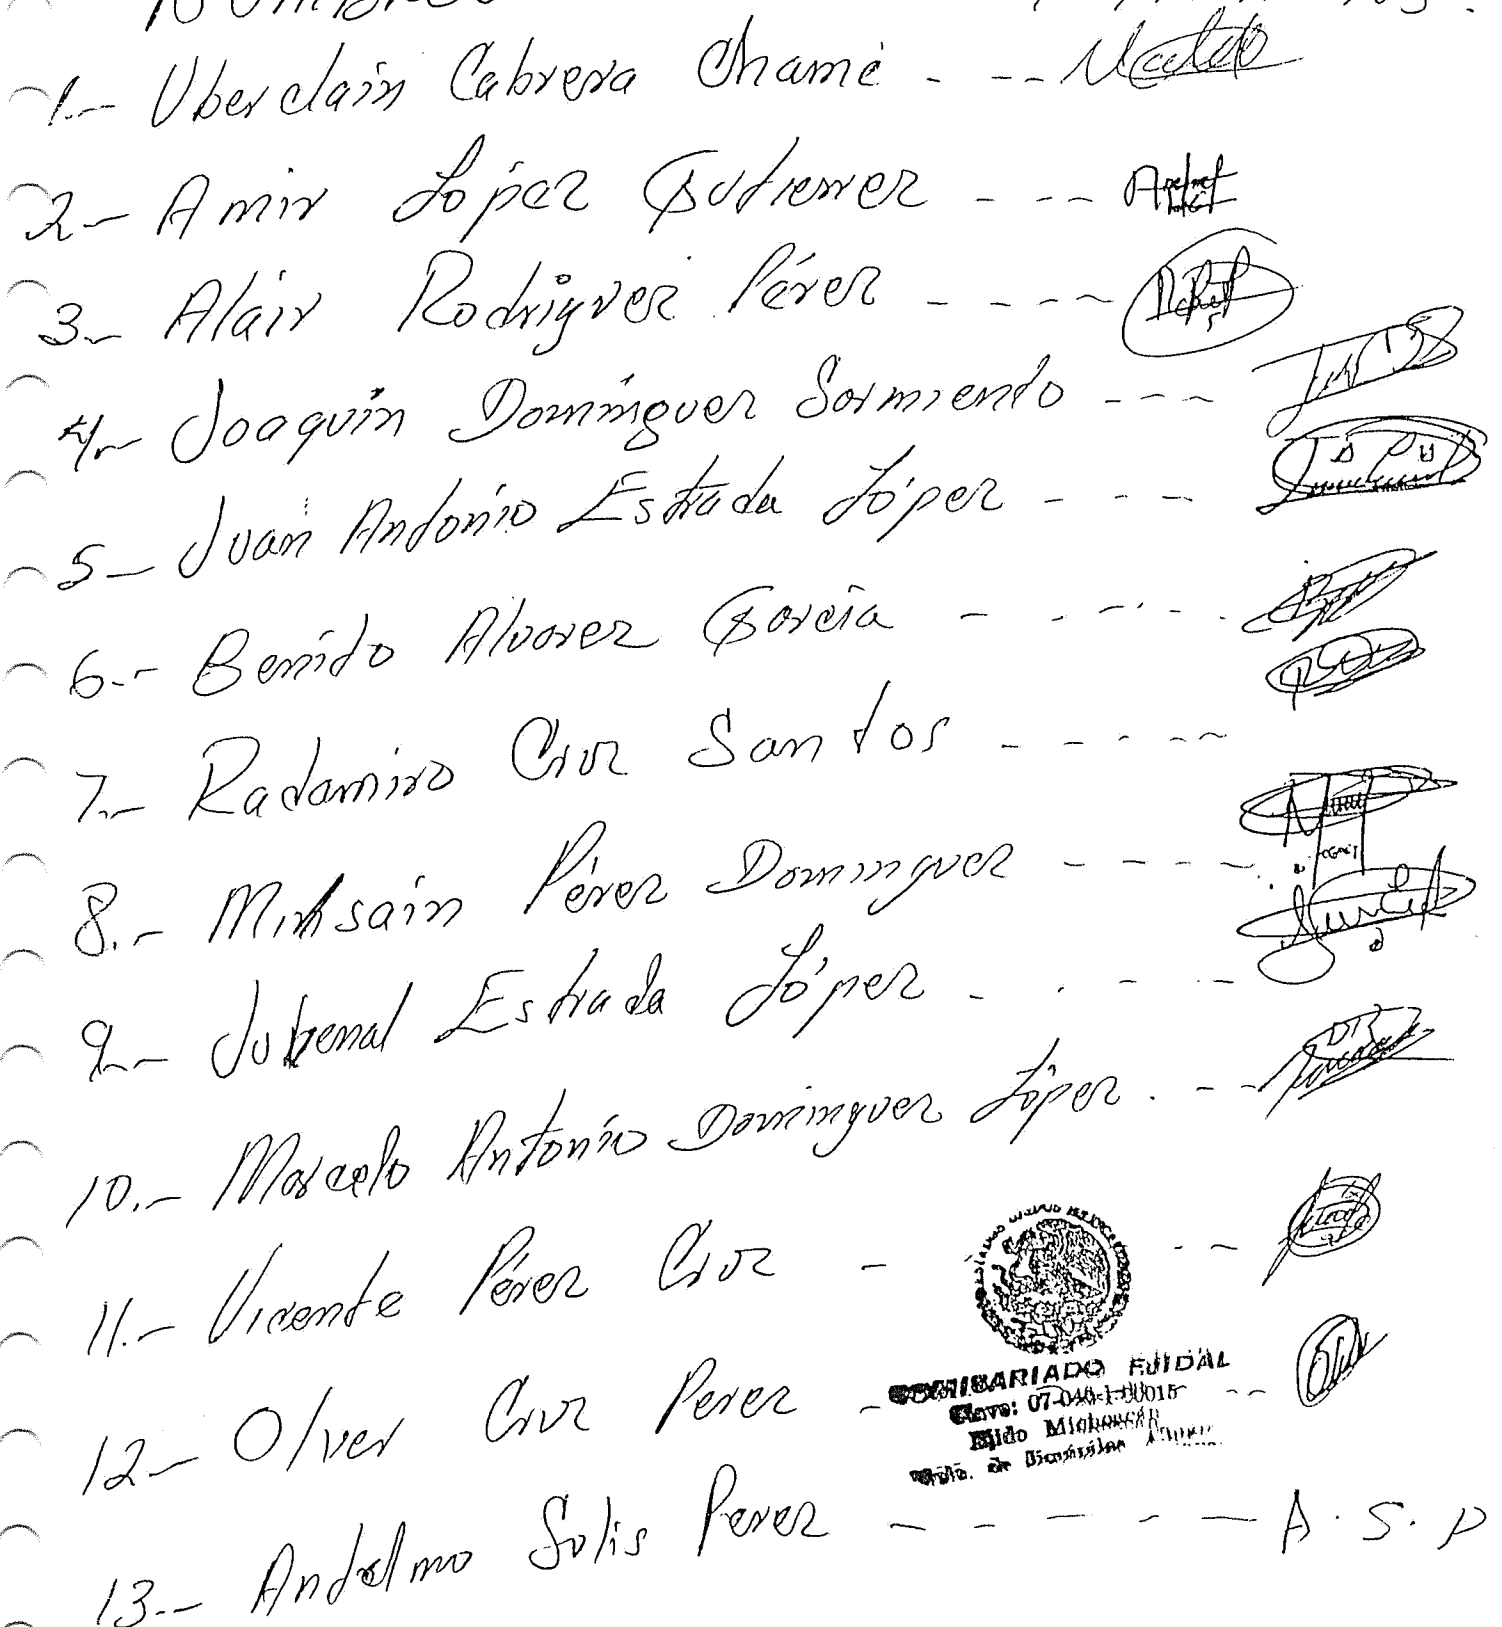 Nombres
1.- Uberclain Cabrera Chamé - - -
2.- Amir López Gutierrez - - -
3.- Alair Rodriguez Pérez - - - -
4.- Joaquin Dominguez Sarmiento - - -
5.- Juan Antonio Estrada López - - -
6.- Benito Alvarez Garcia - - - -
7.- Radamiro Cruz Santos - - - - -
8.- Misain Pérez Dominguez - - - - -
9.- Jubenal Estrada López - - - -
10.- Marcelo Antonio Dominguez López - - -
11.- Vicente Pérez Cruz - - -
12.- Olver Cruz Perez - - -
COMISARIADO EJIDAL
Clave: 07-040-1-00015
Ejido Michoacán
13.- Antelmo Solis Perez - - - - - A. S. P